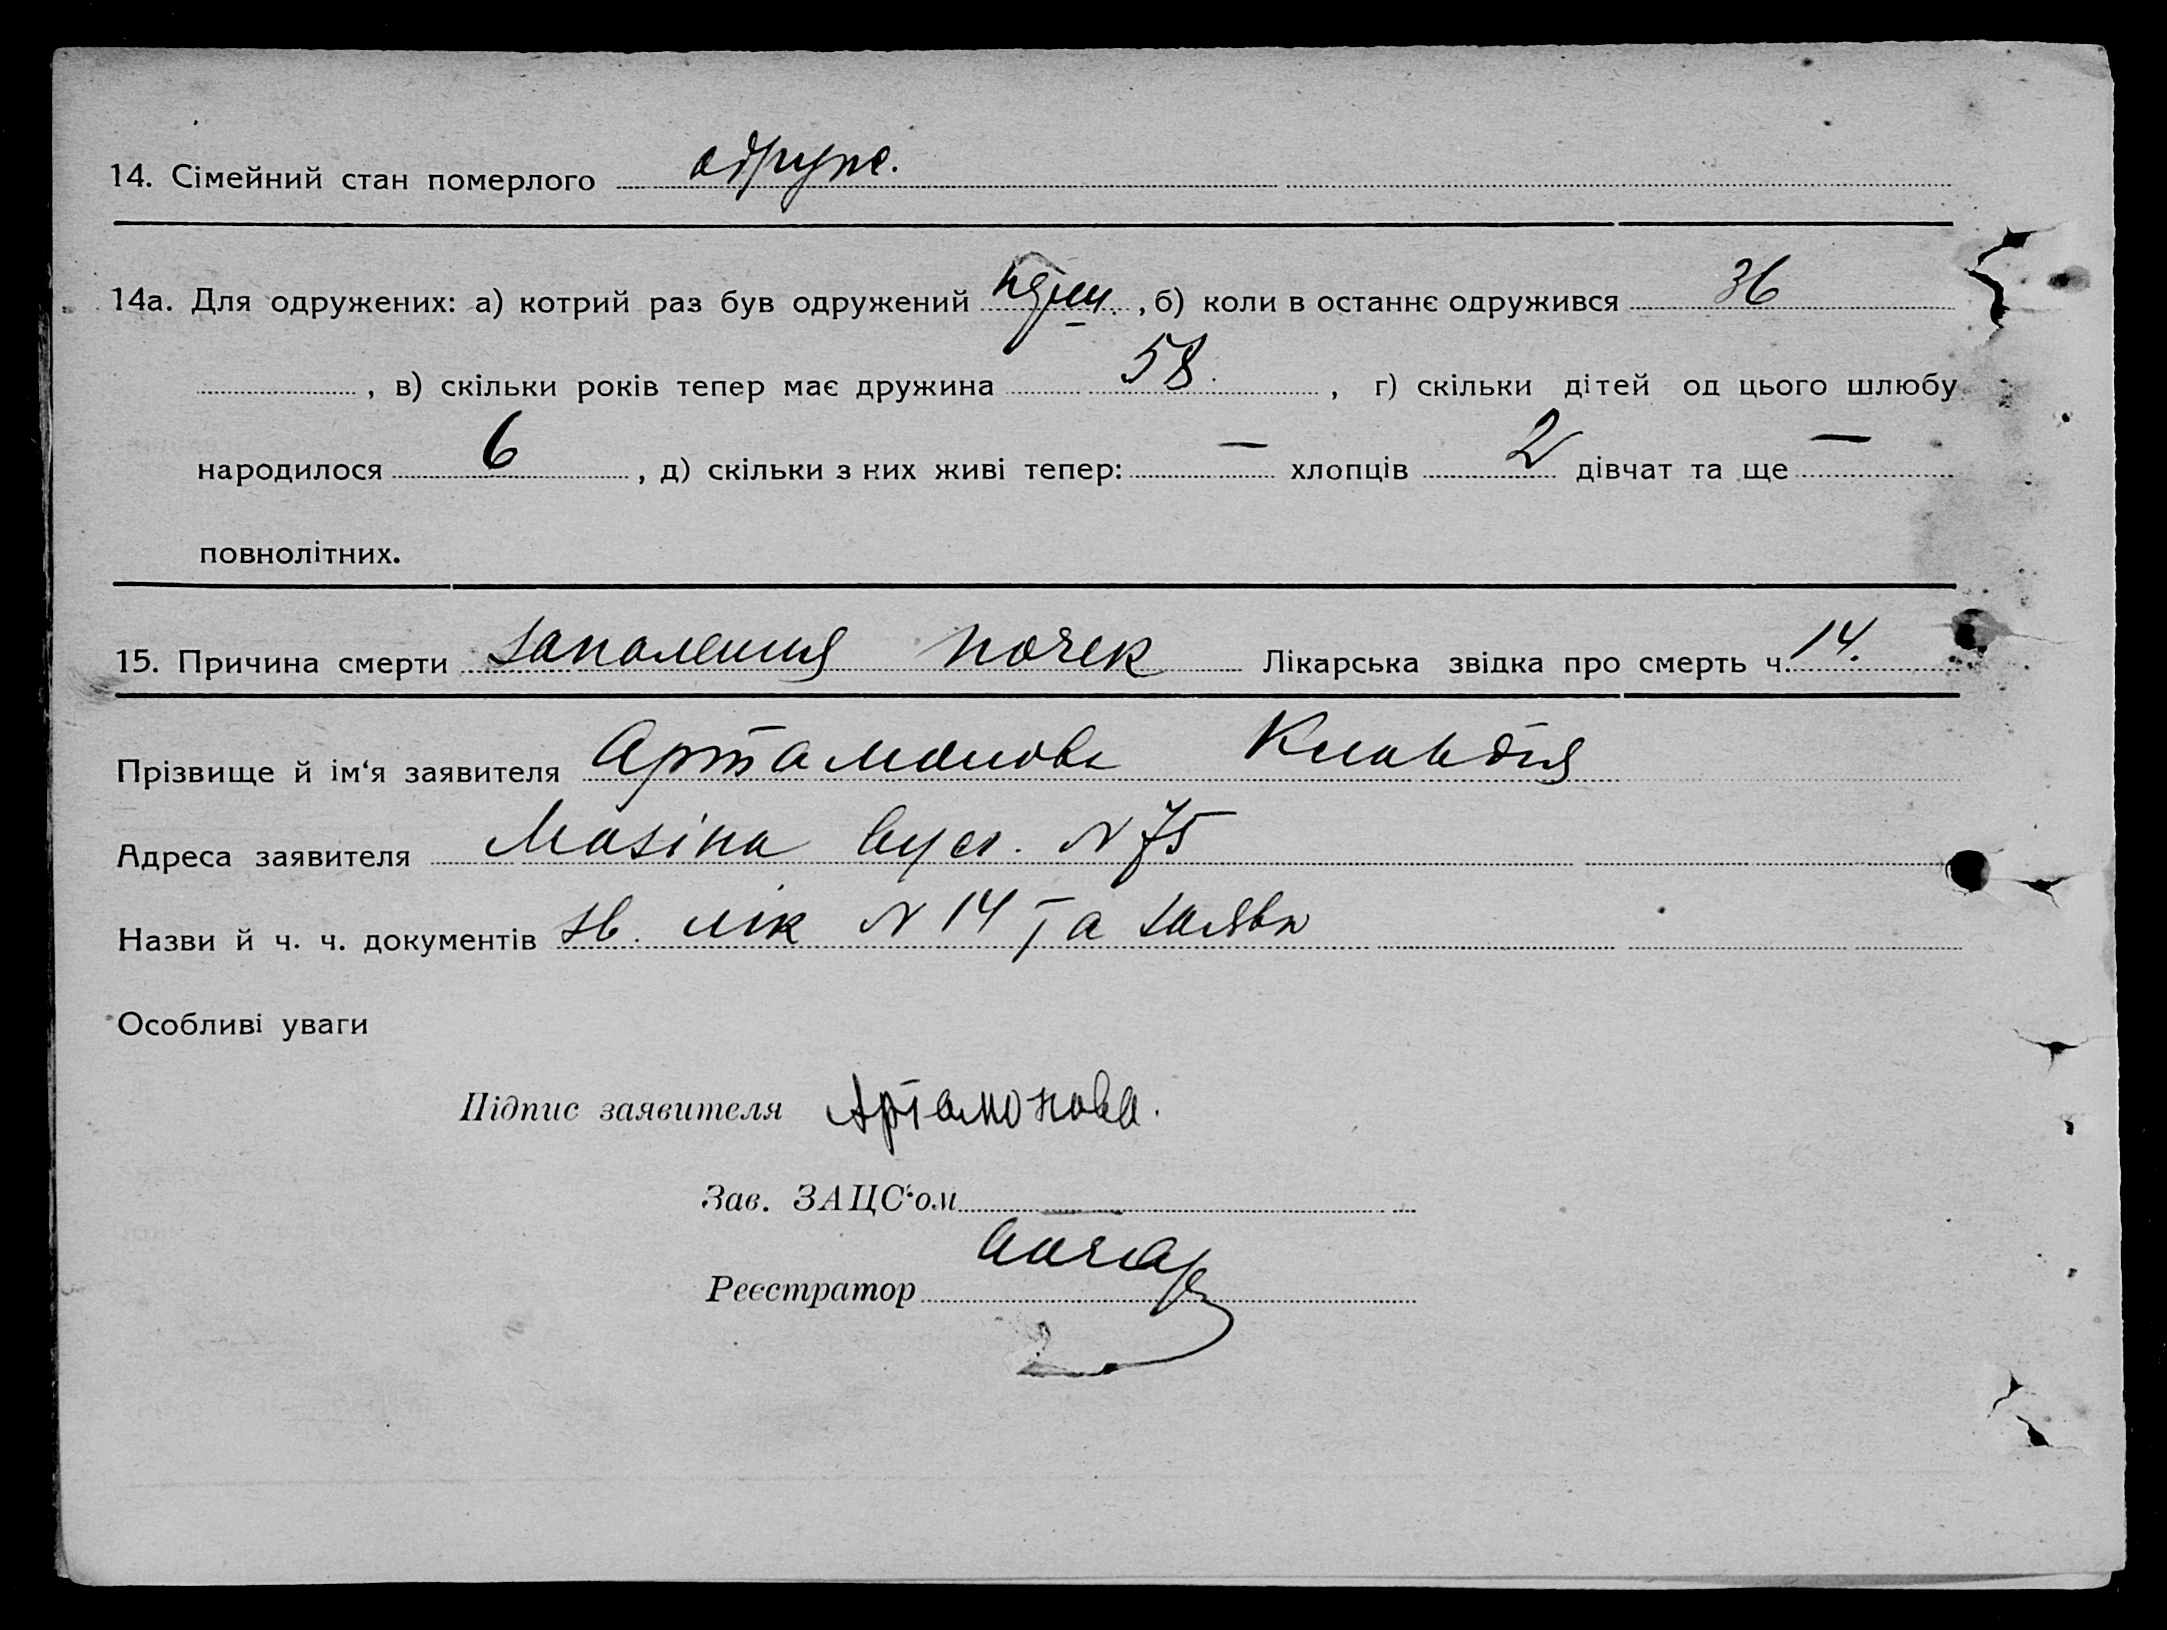 14. Сімейний стан померлого одруж.
14а. Для одружених: а) котрий раз був одружений перш., б) коли в останнє одружився 36
, в) скільки років тепер має дружина 58. , г) скільки дітей од цього шлюбу
народилося 6 , д) скільки з них живі тепер: — хлопців 2 дівчат та ще —
повнолітних.
15. Причина смерти запалення почек Лікарська звідка про смерть ч. 14.
Прізвище й ім‘я заявителя Артамонова Клавдія
Адреса заявителя Мазіна вул. N 75
Назви й ч. ч. документів зв. лік N 14 та заява
Особливі уваги
Підпис заявителя Артамонова.
Зав. ЗАЦС‘ом
Реєстратор